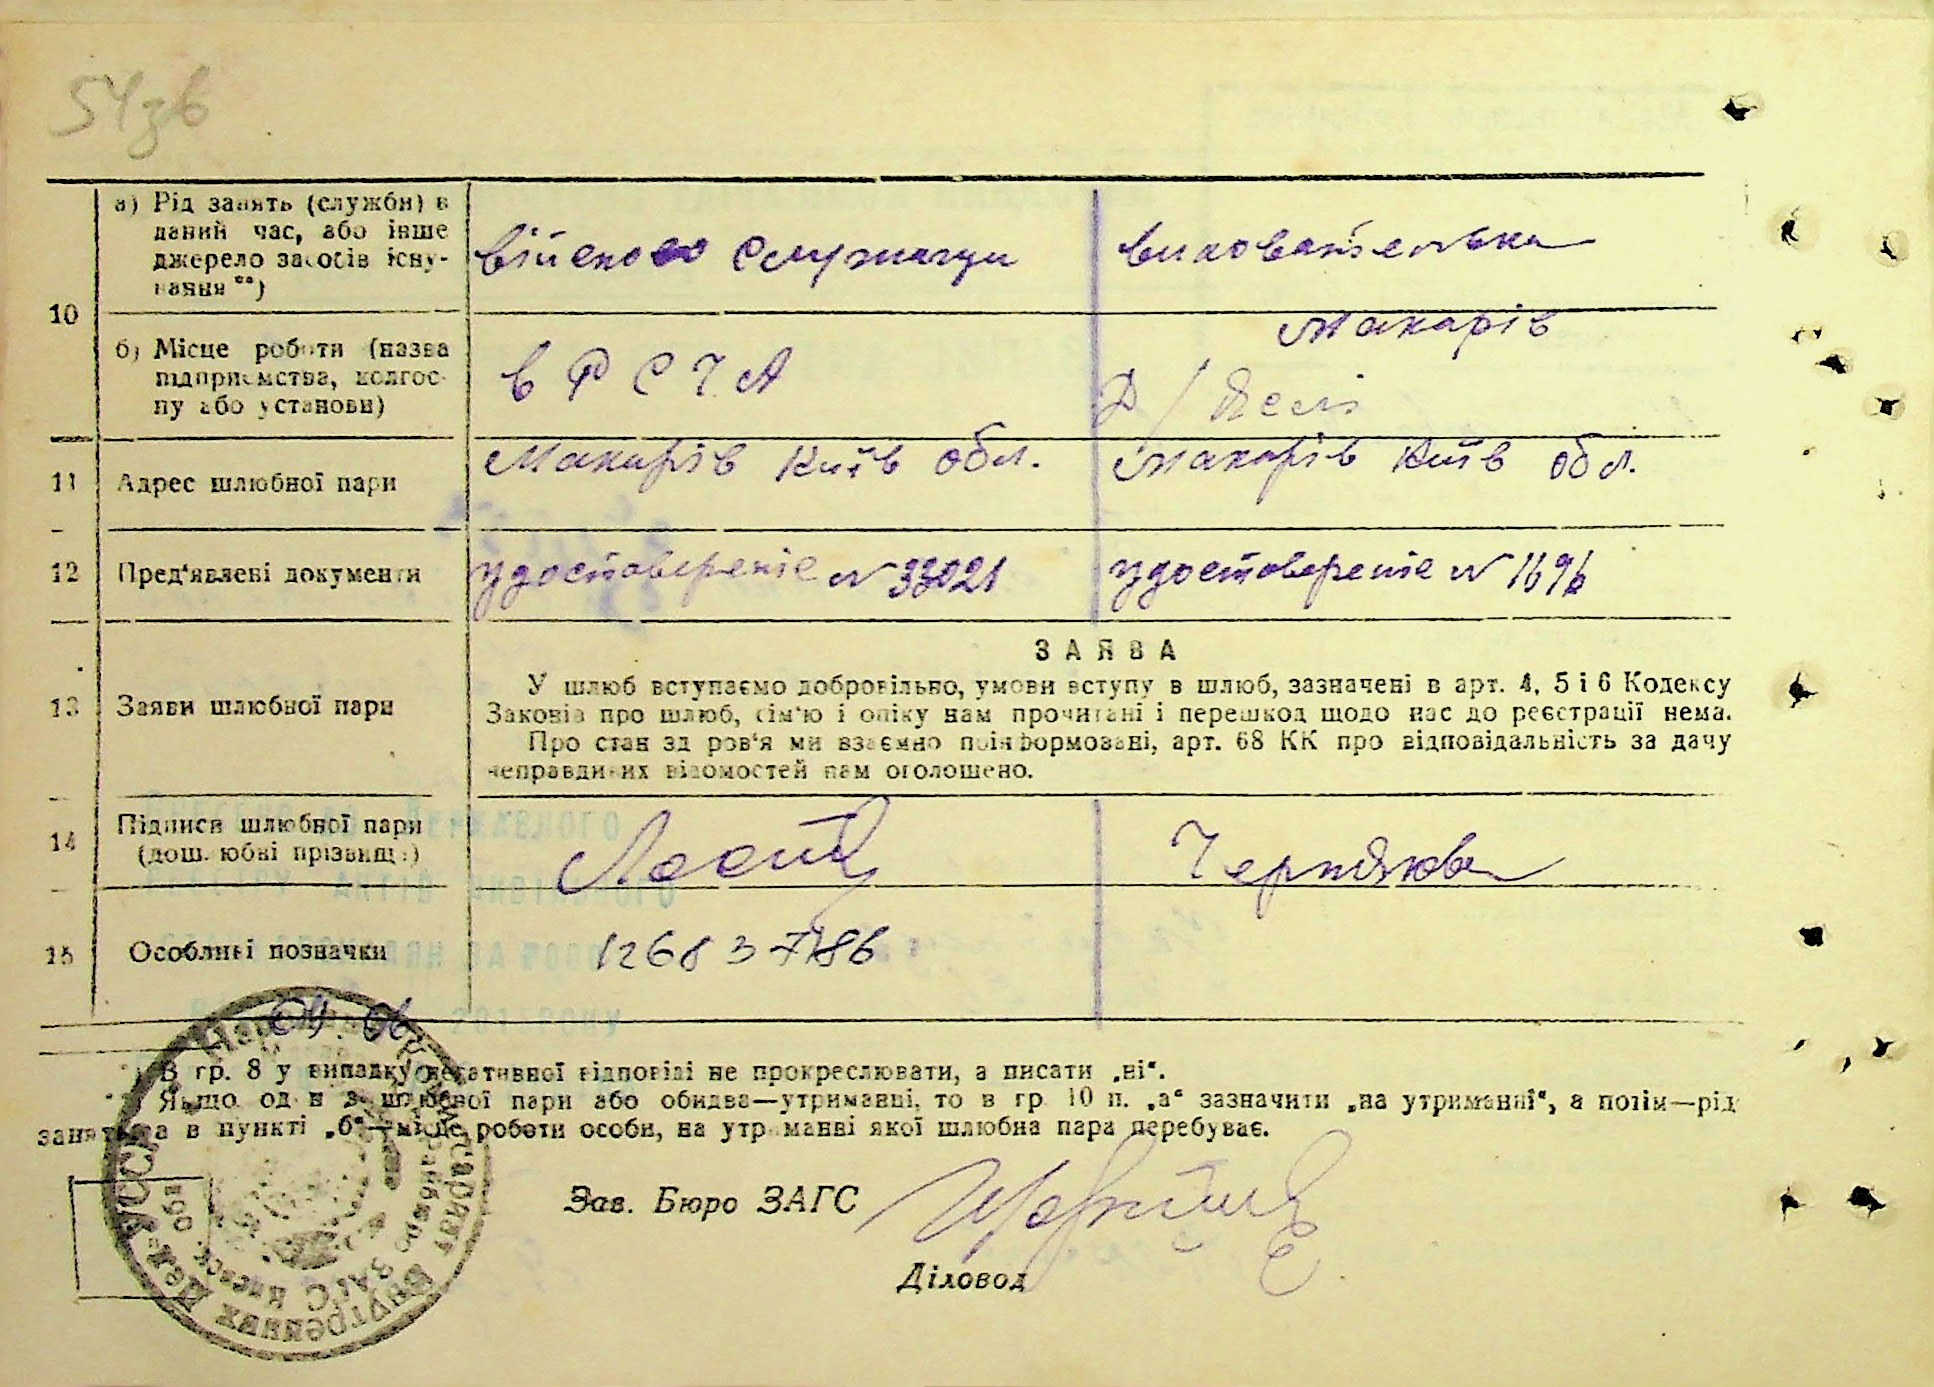 54зв
а) Рід занять (служби) в
даний час, або інше
джерело засобів існу-
вання **)
військово служащи
виховательки
10
б) Місце роботи (назва
підприємства, колгос-
пу або установи)
в Р С Ч А
Макарів
Д / Яслі
11
Адрес шлюбної пари
Макарів Київ обл.
Макарів Київ обл.
12
Пред'явлені документи
удостовереніе № 33021
удостовереніе № 1696
13
Заяви шлюбної пари
ЗАЯВА
У шлюб вступаємо добровільно, умови вступу в шлюб, зазначені в арт. 4, 5 і 6 Кодексу
Законів про шлюб, сім'ю і опіку нам прочитані і перешкод щодо нас до реєстрації нема.
Про стан здоров'я ми взаємно поінформовані, арт. 68 КК про відповідальність за дачу
неправдивих відомостей нам оголошено.
14
Підписи шлюбної пари
(дошлюбні прізвища)
Чернякова
15
Особливі позначки
12683786
*) В гр. 8 у випадку негативної відповіді не прокреслювати, а писати „ні“.
**) Якщо один з шлюбної пари або обидва—утриманні, то в гр. 10 п. „а“ зазначити „на утриманні“, а потім—рід
занять, а в пункті „б“—місце роботи особи, на утриманні якої шлюбна пара перебуває.
Зав. Бюро ЗАГС
Діловод